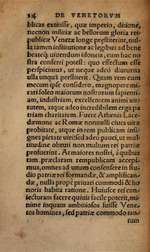 214 DE VENETORVM
blicas extitisse, quæ imperio, dicione,
necnon insitæ ac bellorum gloria rei-
publicæ Venetæ longe prestiterint, nul-
la tamen institutione ac legibus ad bene
beateq; viuendum idoneis, cum hac no-
stra conferri potest: quo effectum esse
perspicimus, vt neque adeo diuturna
vlla vnquam perstiterit. Quam rem cum
mecum ipse considero, magnopere mi-
rari soleo maiorum nostrorum sapien-
tiam, industriam, excellentem animi vir-
tutem, atque adeo incredibilem erga pa-
triam charitatem. Fuere Athenis Lace-
dæmone ac Romæ nonnulli ciues vitæ
probitate, atque in rem publicam insi-
gnes pietate viri: sed adeo pauci, vt mul-
titudine obruti non multum rei patriæ
profuerint. At maiores nostri, a quibus
tam præclaram rempublicam accepi-
mus, omnes ad vnum consensere in stu-
dio patriæ rei formandæ, & amplifican-
dæ, nulla prope priuati commodi & ho-
noris habita ratione. Huiusce rei con-
iecturam facere quiuis facile poterit,
nime inquam ambitiosos fuisse Vene-
tos homines, sed patriæ commodo tan-
tum